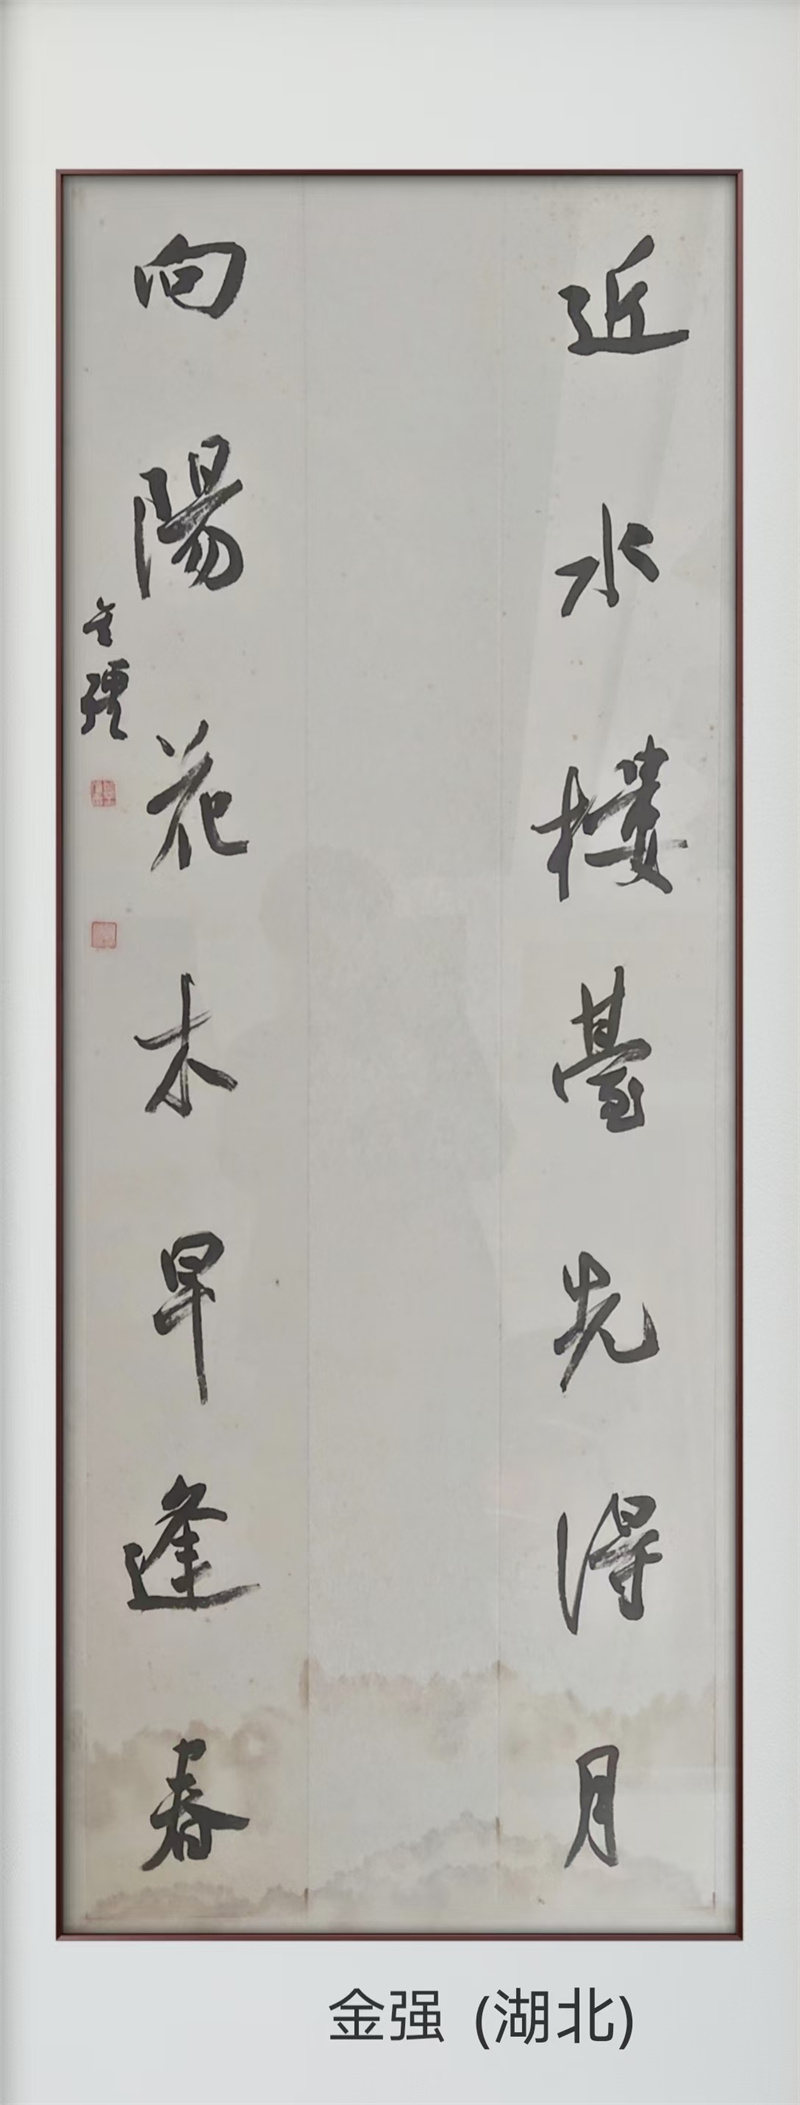 近水楼臺先得月
向陽花木早逢春
金强
金强 (湖北)